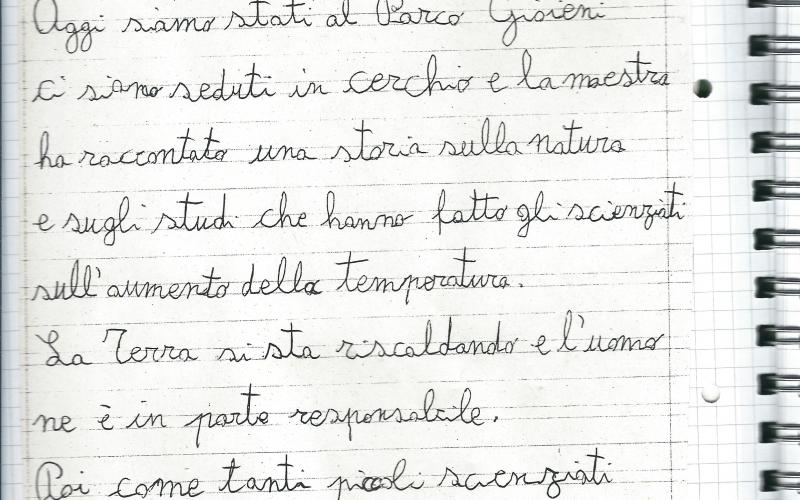 Oggi siamo stati al Parco Gioieni
ci siamo seduti in cerchio e la maestra
ha raccontato una storia sulla natura
e sugli studi che hanno fatto gli scienziati
sull'aumento della temperatura.
La Terra si sta riscaldando e l'uomo
ne è in parte responsabile.
Poi come tanti piccoli scienziati